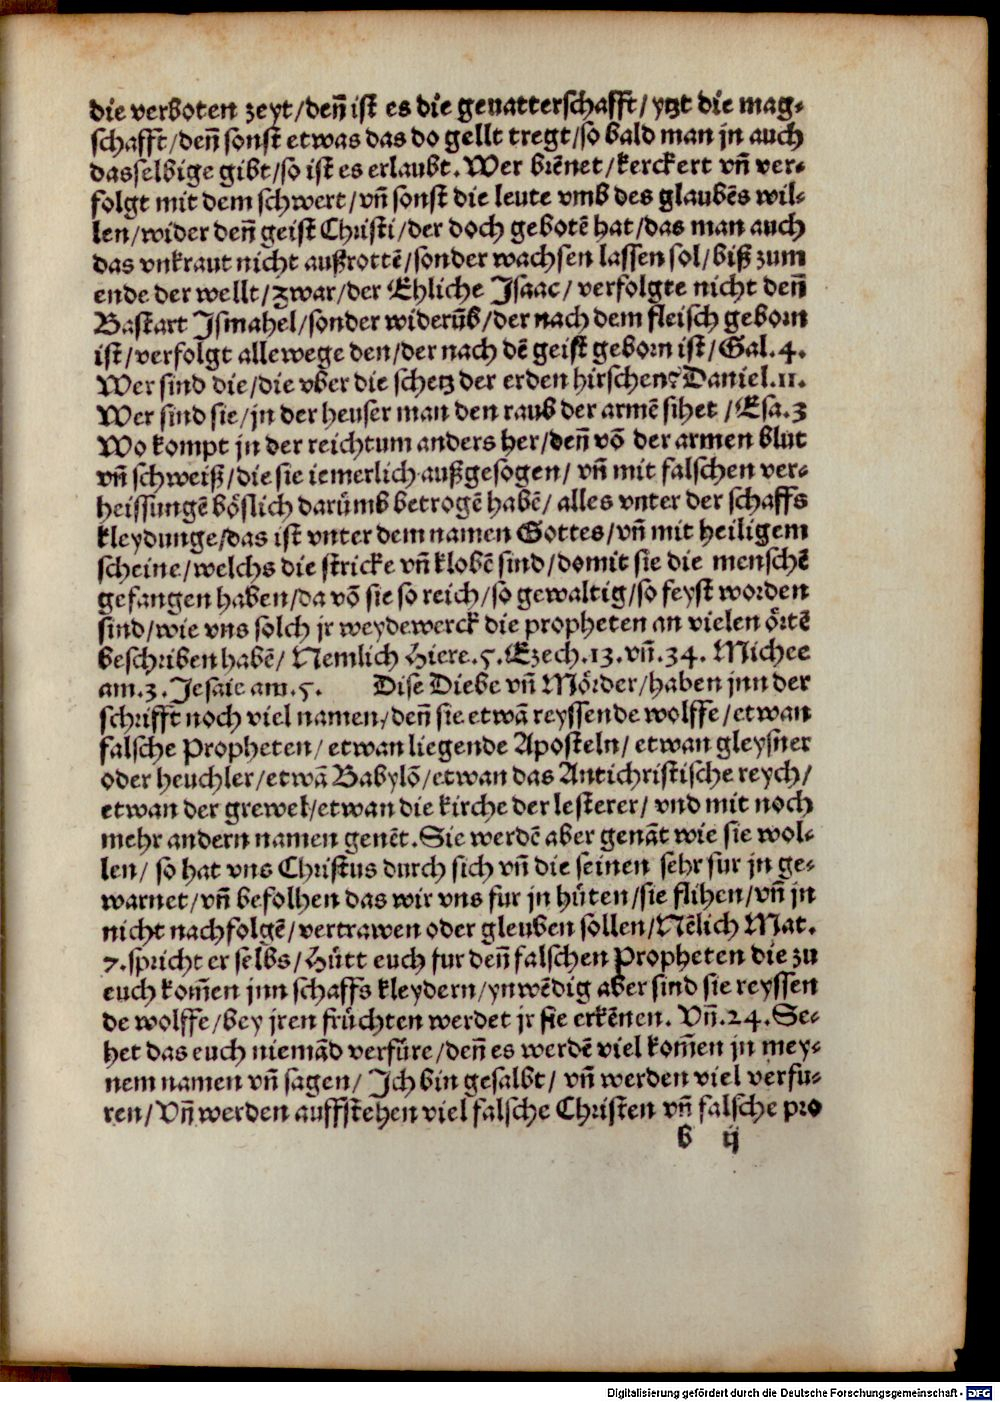 die verboten zeyt/denñ ist es die geuatterschafft/ytzt die mag-
schafft/denñ sonst etwas das do gellt tregt/so bald man jn auch
dasselbige gibt/so ist es erlaubt. Wer brẽnet/kerckert vñ ver-
folgt mit dem schwert/vñ sonst die leute vmb des glaubẽs wil-
len/wider denñ geist Christi/der doch gebotẽ hat/das man auch
das vnkraut nicht außrottẽ/sonder wachsen lassen sol/biß zum
ende der wellt/zwar/der Ehliche Isaac/verfolgte nicht denñ
Bastart Ismahel/sonder widerũb/der nach dem fleisch geborn
ist/verfolgt allewege den/der nach dẽ geist geborn ist/Gal.4.
Wer sind die/die vber die schetz der erden hirschen? Daniel.11.
Wer sind sie/jn der heuser man den raub der armẽ sihet/Esa.3
Wo kompt jn der reichtum anders her/denñ võ der armen blut
vñ schweiß/die sie iemerlich außgesogen/vñ mit falschen ver-
heissungẽ böslich darümb betrogẽ habẽ/alles vnter der schaffs
kleydunge/das ist vnter dem namen Gottes/vñ mit heiligem
scheine/welchs die stricke vñ klobẽ sind/domit sie die menschẽ
gefangen haben/da võ sie so reich/so gewaltig/so feyst worden
sind/wie vns solch jr weydewerck die propheten an vielen örtẽ
beschriben habẽ/Nemlich Hiere.5.Ezech.13.vñ.34. Michee
am.3.Jesaie am.5. Dise Diebe vñ Mörder/haben jnn der
schrifft noch viel namen/denñ sie etwã reyssende wolffe/etwan
falsche Propheten/etwan liegende Aposteln/etwan gleysner
oder heuchler/etwã Babylõ/etwan das Antichristische reych/
etwan der grewel/etwan die kirche der lesterer/vnd mit noch
mehr andern namen genẽt. Sie werdẽ aber genãt wie sie wol-
len/so hat vns Christus durch sich vñ die seinen sehr fur jn ge-
warnet/vñ befolhen das wir vns fur jn hüten/sie flihen/vñ jn
nicht nachfolgẽ/vertrawen oder gleuben sollen/Nẽlich Mat.
7.spricht er selbs/Hütt euch fur denñ falschen Propheten die zu
euch kom̃en jnn schaffs kleydern/ynwẽdig aber sind sie reyssen
de wolffe/bey jren früchten werdet jr sie erkẽnen. Vñ.24.Se-
het das euch niemãd verfüre/denñ es werdẽ viel kom̃en jn mey-
nem namen vñ sagen/Ich bin gesalbt/vñ werden viel verfu-
ren/Vñ werden auffstehen viel falsche Christen vñ falsche pro
b ij
Digitalisierung gefördert durch die Deutsche Forschungsgemeinschaft - DFG